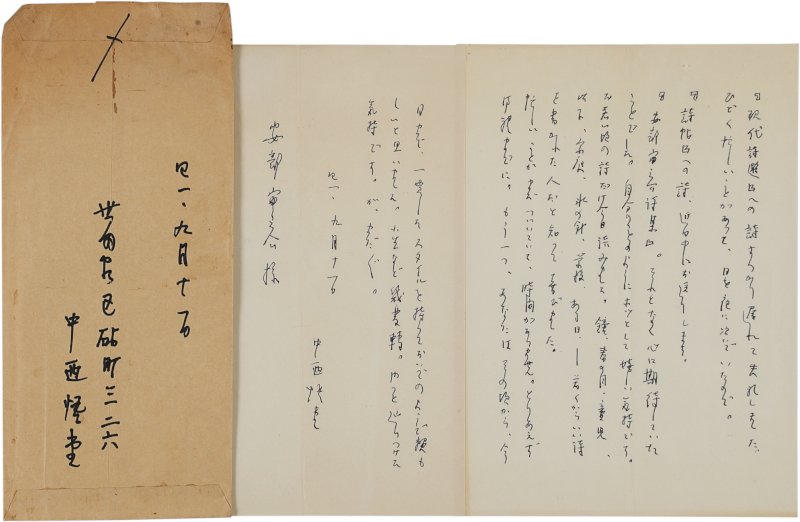 「現代詩選」への詩すつかり遅れて失礼しました。
ひどく忙しいことがあつて、日を夜に次いでいたので。
「詩帖」への詩、近日中にお送りします。
安部宙之介詩集。それとなく心に期待していた
ことでした。自分のことのようにホッとして嬉しい気持です。
お若い頃の詩だけ今日読みました。鐘、春の月、童児、
以下、氷の針、学校、ある日、若くからいい詩
を書かれた人だと知つて喜びました。
忙しいことがまだつづいていて、時間がありません。とりあえず
御礼まで。もう一つ、あなたはその頃から、今
日まで、一貫したスタイルを持つておいでのようで頼も
しいと思いました。小生など幾変転。
気持です。が、まだ
四一、九月十一日
中西悟堂
安部宙之介様
四一、九月十一日
世田谷区砧町三二六
中西悟堂